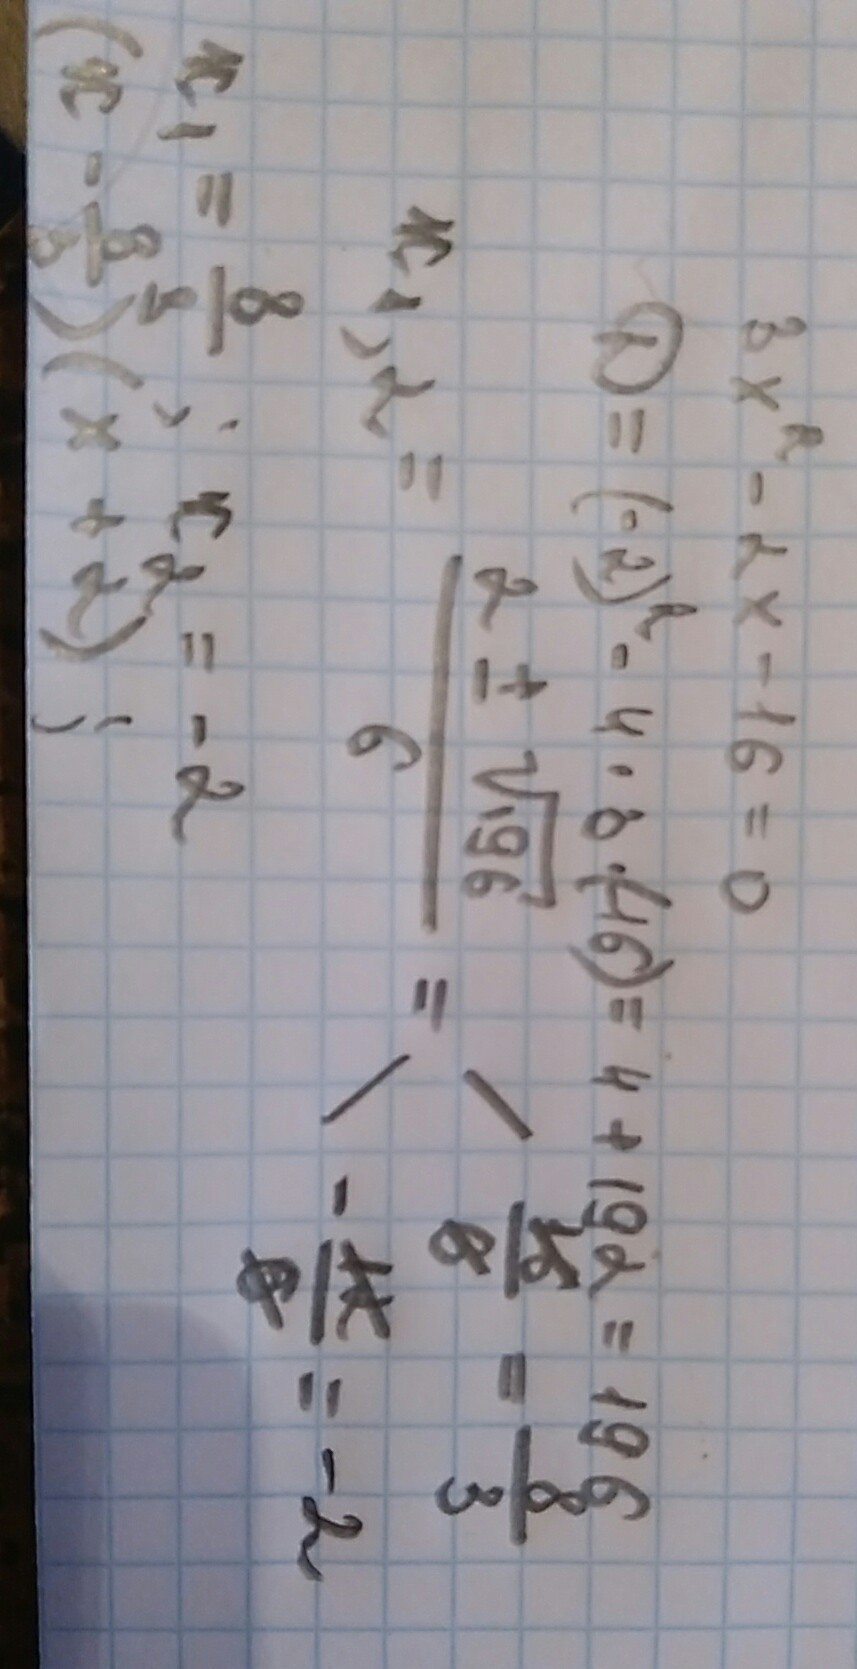 3x² - 2x - 16 = 0
D = (-2)² - 4 · 3 · (-16) = 4 + 192 = 196
x1,2 = (2 ± √196) / 6 = 16/6 = 8/3
-12/6 = -2
x1 = 8/3 ; x2 = -2
(x - 8/3)(x + 2) ;